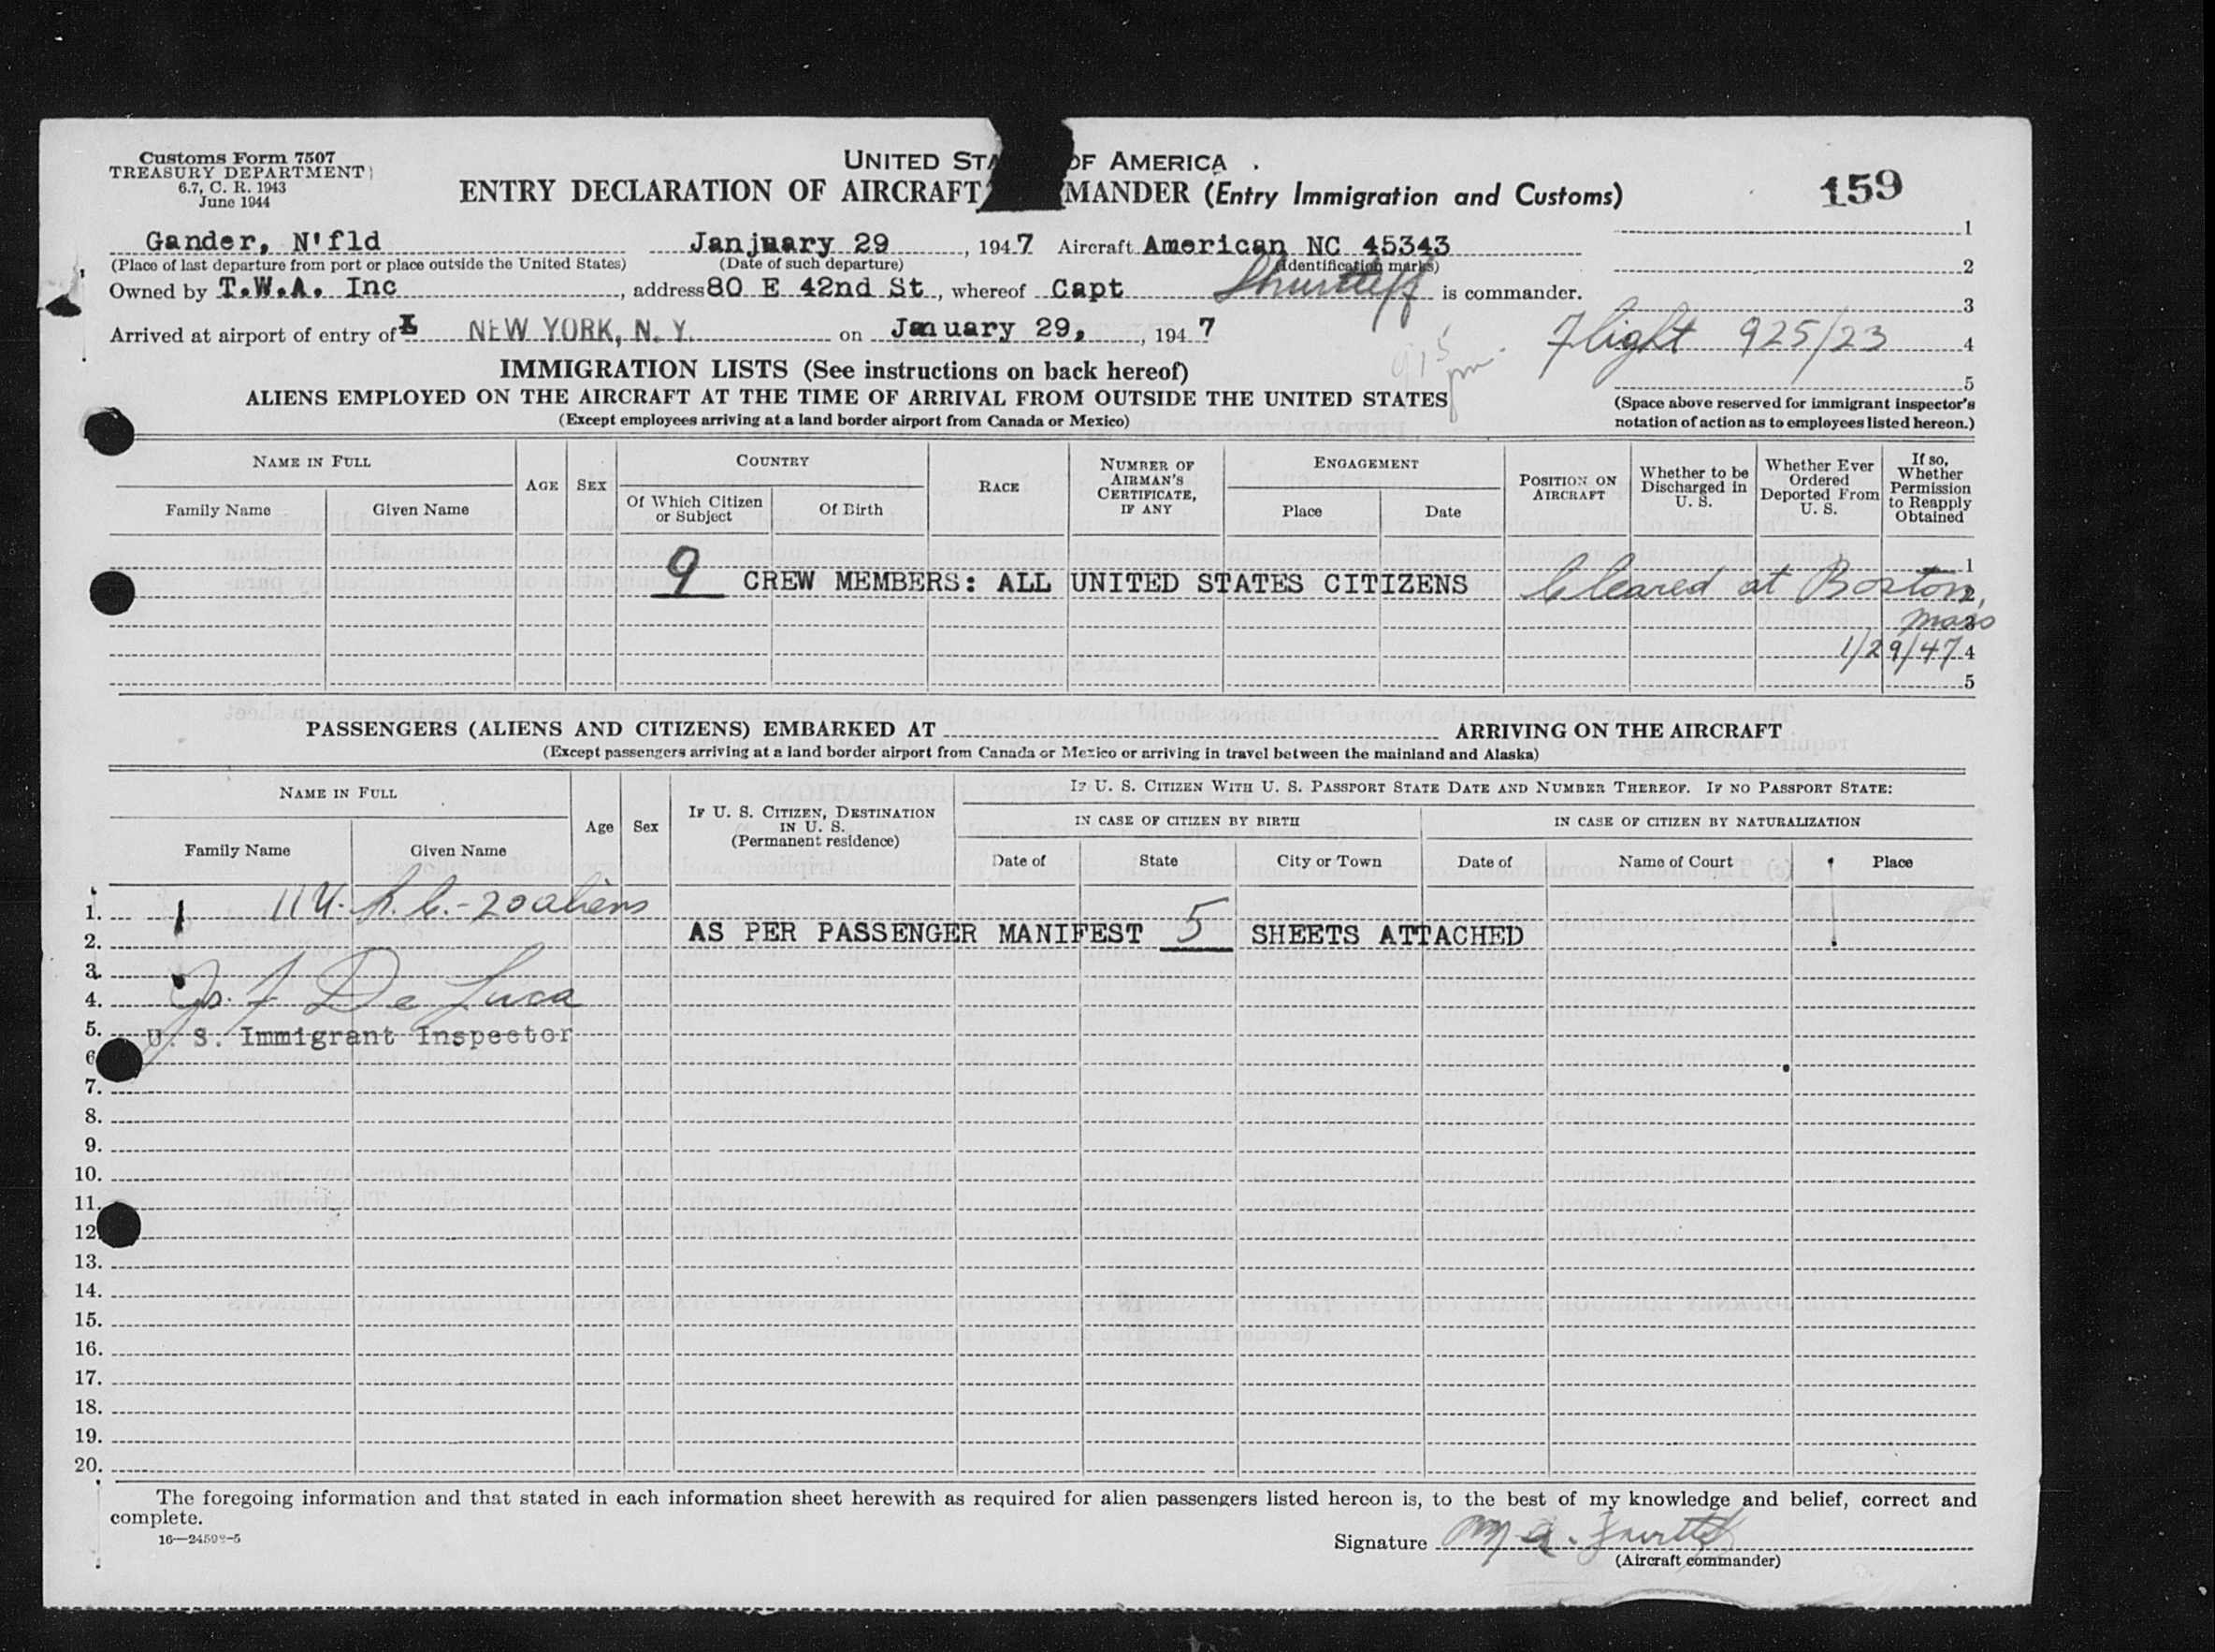 Customs Form 7507
TREASURY DEPARTMENT
6.7, C. R. 1943
June 1944
UNITED STA OF AMERICA
ENTRY DECLARATION OF AIRCRAFT MANDER (Entry Immigration and Customs)
159
Gander, N'fld Janjuary 29, 1947 Aircraft American NC 45343
(Place of last departure from port or place outside the United States) (Date of such departure) (Identification marks)
Owned by T.W.A. Inc, address 80 E 42nd St, whereof Capt Shurtleff is commander.
Arrived at airport of entry of NEW YORK, N. Y. on January 29, 1947
1
2
3
Flight 925/23 4
5
915 pm
(Space above reserved for immigrant inspector's
notation of action as to employees listed hereon.)
IMMIGRATION LISTS (See instructions on back hereof)
ALIENS EMPLOYED ON THE AIRCRAFT AT THE TIME OF ARRIVAL FROM OUTSIDE THE UNITED STATES
(Except employees arriving at a land border airport from Canada or Mexico)
NAME IN FULL
Family Name Given Name
AGE
SEX
COUNTRY
Of Which Citizen or Subject
Of Birth
RACE
NUMBER OF AIRMAN'S CERTIFICATE, IF ANY
ENGAGEMENT
Place Date
POSITION ON AIRCRAFT
Whether to be Discharged in U. S.
Whether Ever Ordered Deported From U. S.
If so, Whether Permission to Reapply Obtained
1
9 CREW MEMBERS: ALL UNITED STATES CITIZENS Cleared at Boston, 2
Mass 3
1/29/47 4
5
PASSENGERS (ALIENS AND CITIZENS) EMBARKED AT ARRIVING ON THE AIRCRAFT
(Except passengers arriving at a land border airport from Canada or Mexico or arriving in travel between the mainland and Alaska)
NAME IN FULL
Family Name Given Name
Age
Sex
IF U. S. CITIZEN, DESTINATION IN U. S. (Permanent residence)
IF U. S. CITIZEN WITH U. S. PASSPORT STATE DATE AND NUMBER THEREOF. IF NO PASSPORT STATE:
IN CASE OF CITIZEN BY BIRTH
IN CASE OF CITIZEN BY NATURALIZATION
Date of State City or Town Date of Name of Court Place
1. 20 aliens
2. AS PER PASSENGER MANIFEST 5 SHEETS ATTACHED
3.
4. Jos. F De Luca
5. U. S. Immigrant Inspector
6
7.
8.
9.
10.
11.
12
13.
14.
15.
16.
17.
18.
19.
20.
The foregoing information and that stated in each information sheet herewith as required for alien passengers listed hereon is, to the best of my knowledge and belief, correct and
complete.
16—24598-5
Signature
(Aircraft commander)